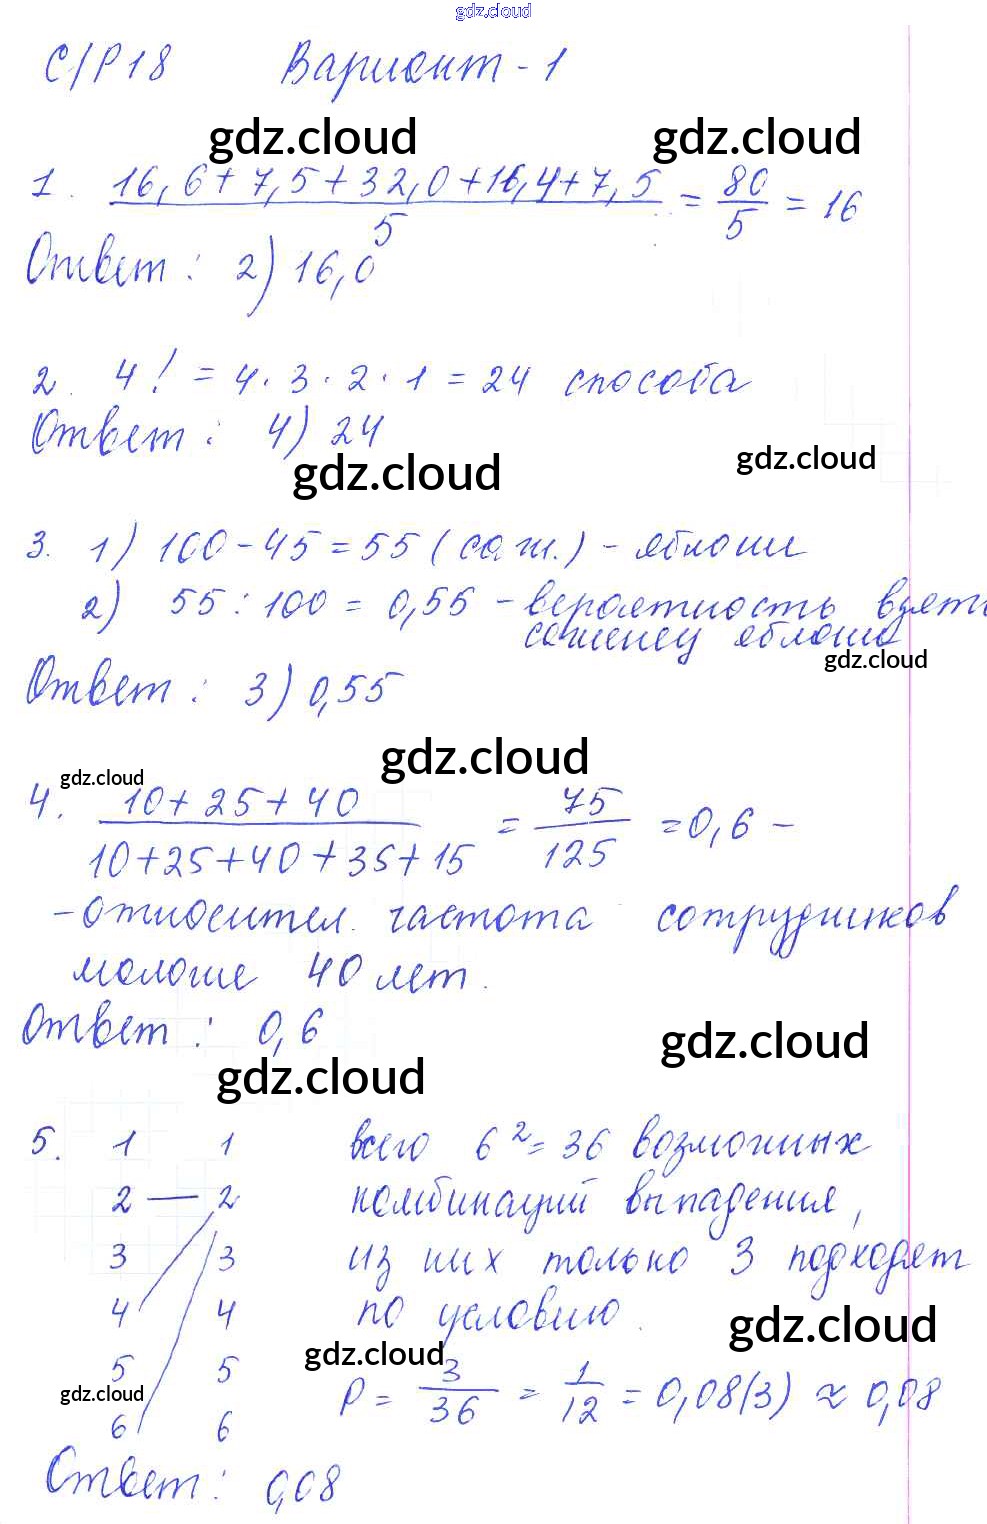 gdz.cloud
С/Р 18 Вариант - 1
gdz.cloud gdz.cloud
1. 16,6+7,5+32,0+16,4+7,5 / 5 = 80/5 = 16
Ответ: 2) 16,0
2. 4! = 4·3·2·1 = 24 способа
Ответ: 4) 24
gdz.cloud gdz.cloud
3. 1) 100-45=55 (саж.) - яблони
2) 55:100 = 0,55 - вероятность взять
саженец яблони
gdz.cloud
Ответ: 3) 0,55
gdz.cloud
gdz.cloud
4. 10+25+40 / 10+25+40+35+15 = 75/125 = 0,6 -
- относител. частота сотрудников
моложе 40 лет.
Ответ: 0,6
gdz.cloud
gdz.cloud
5. 1 1 всего 6² = 36 возможных
2 — 2 комбинаций выпадения,
3 3 из них только 3 подходят
4 4 по условию.
gdz.cloud
gdz.cloud
5 5 P = 3/36 = 1/12 = 0,08(3) ≈ 0,08
gdz.cloud
6 6
Ответ: 0,08